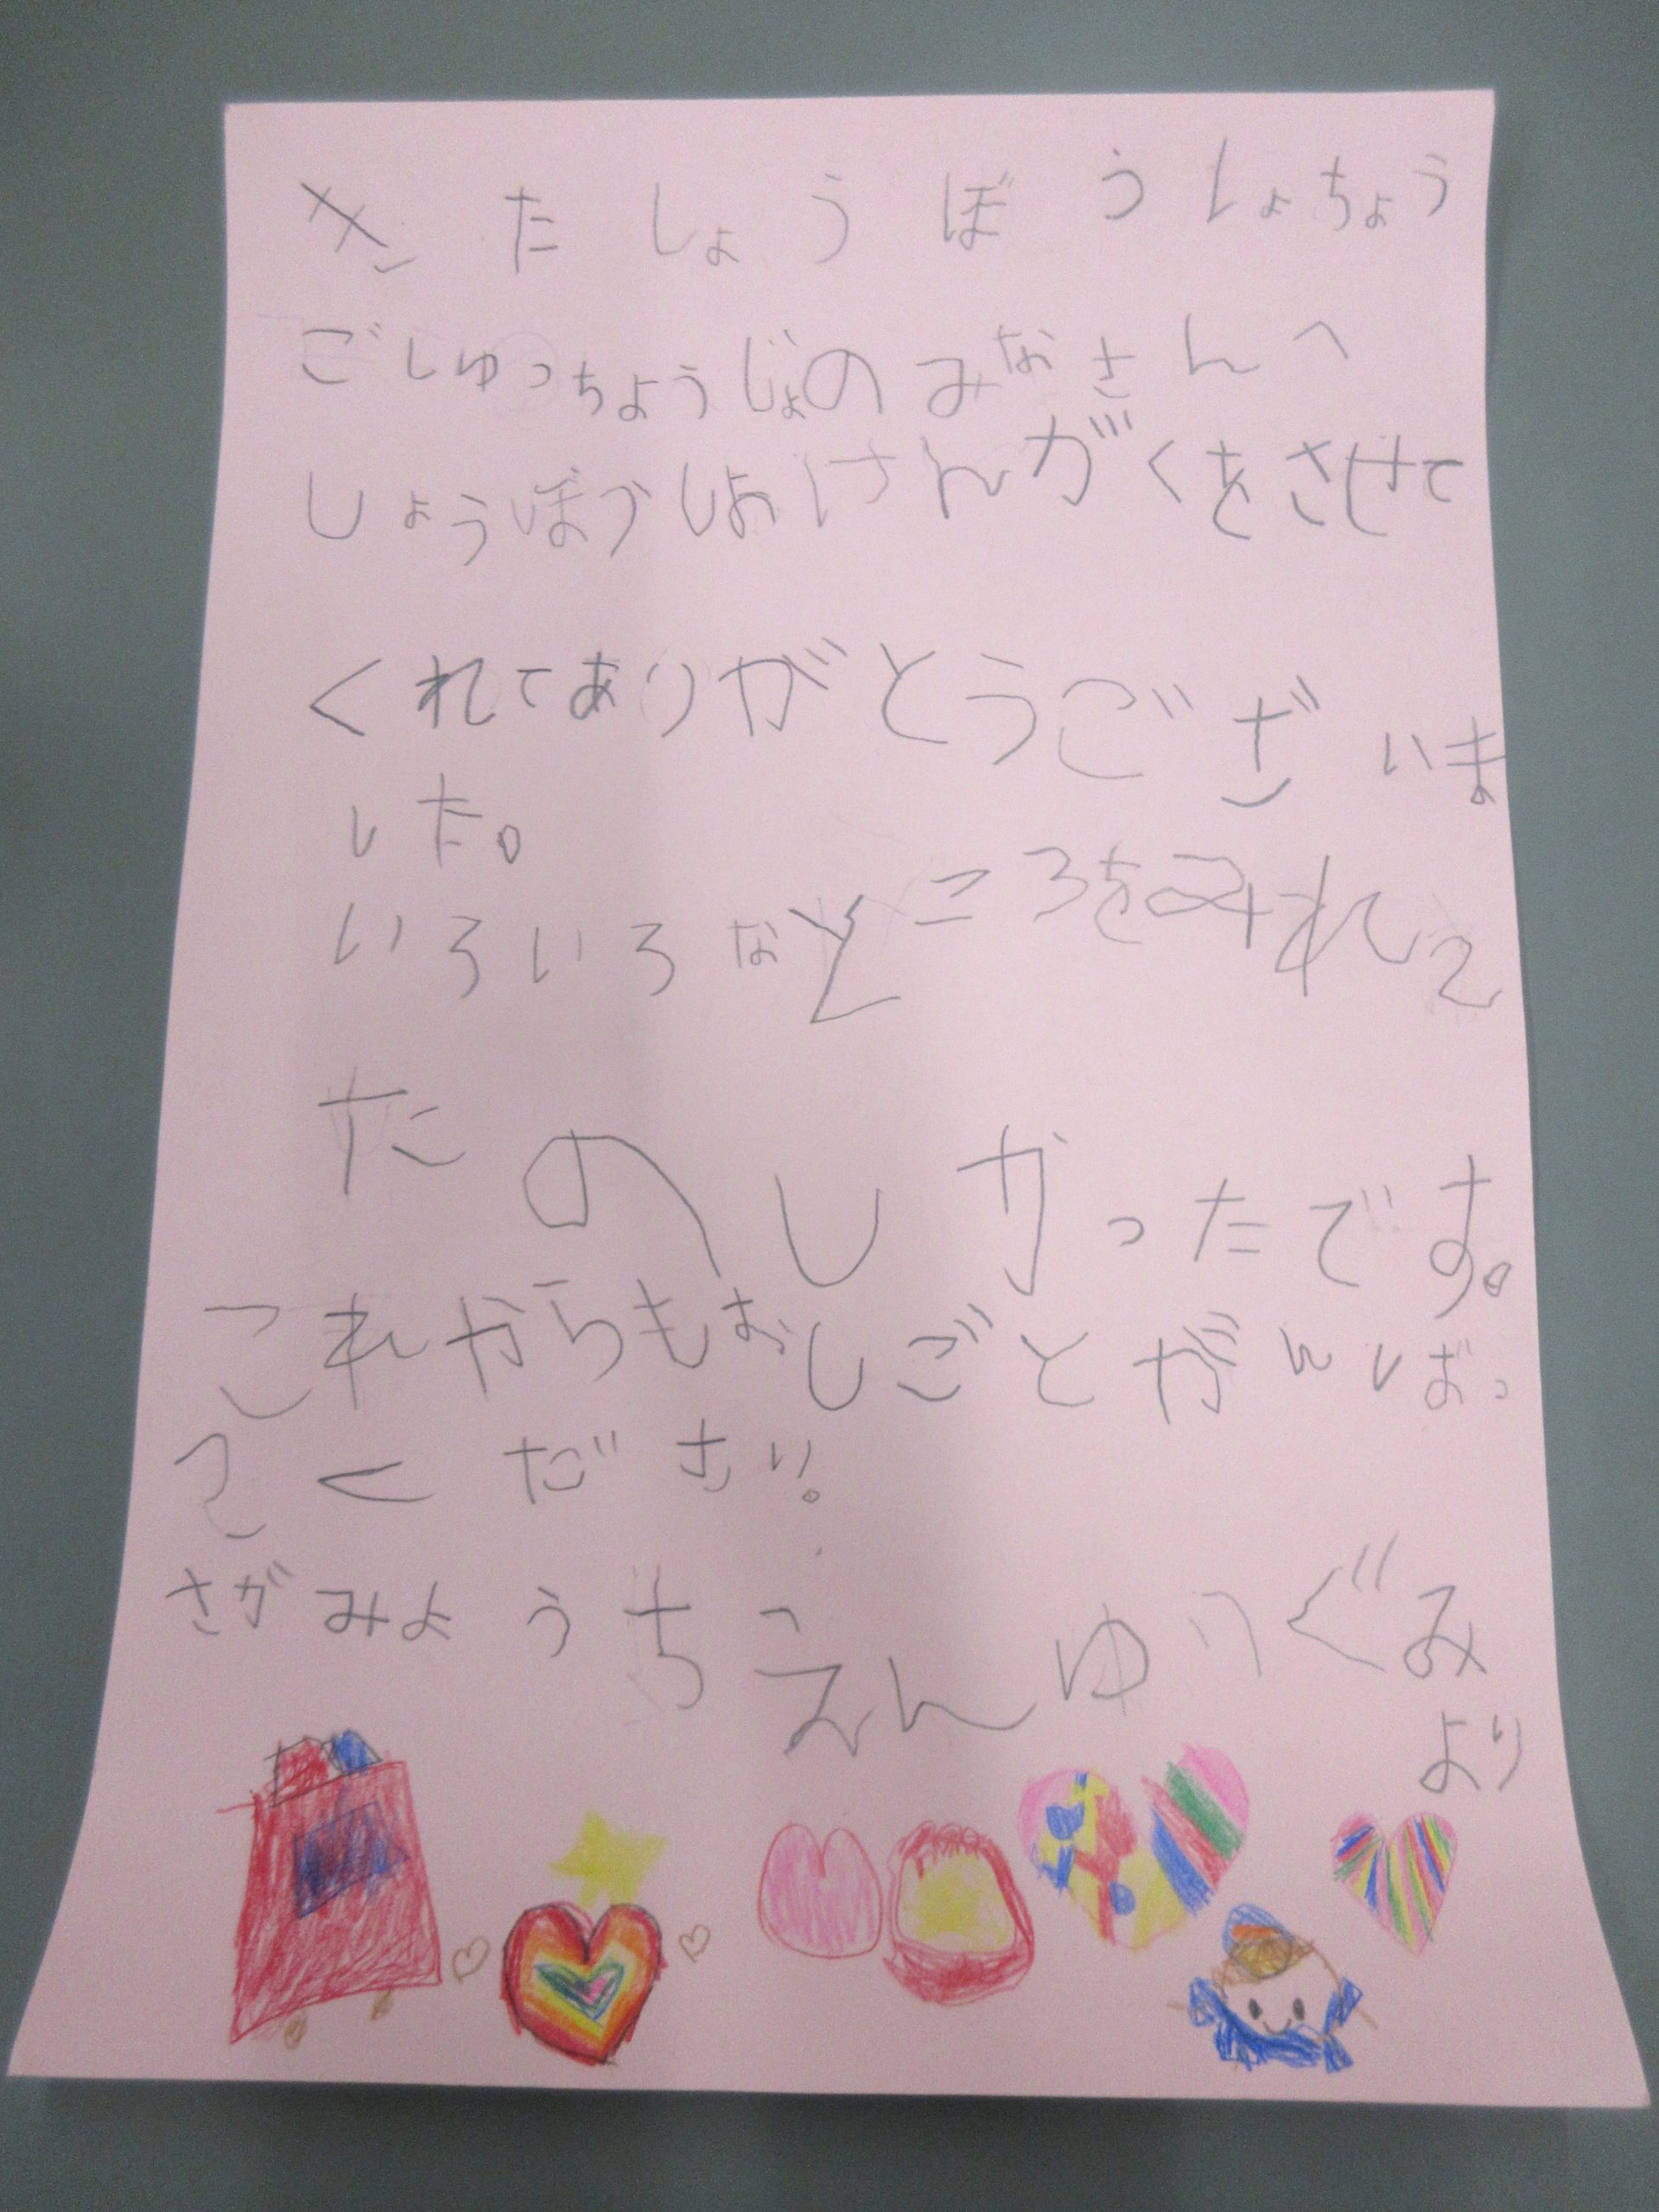 きたしょうぼうしょちょう
ごしゅっちょうじょのみなさんへ
しょうぼうしょけんがくをさせて
くれてありがとうございま
した。
いろいろなところをみれて
たのしかったです。
これからもおしごとがんばっ
てください。
さがみようちえんゆりぐみ
より